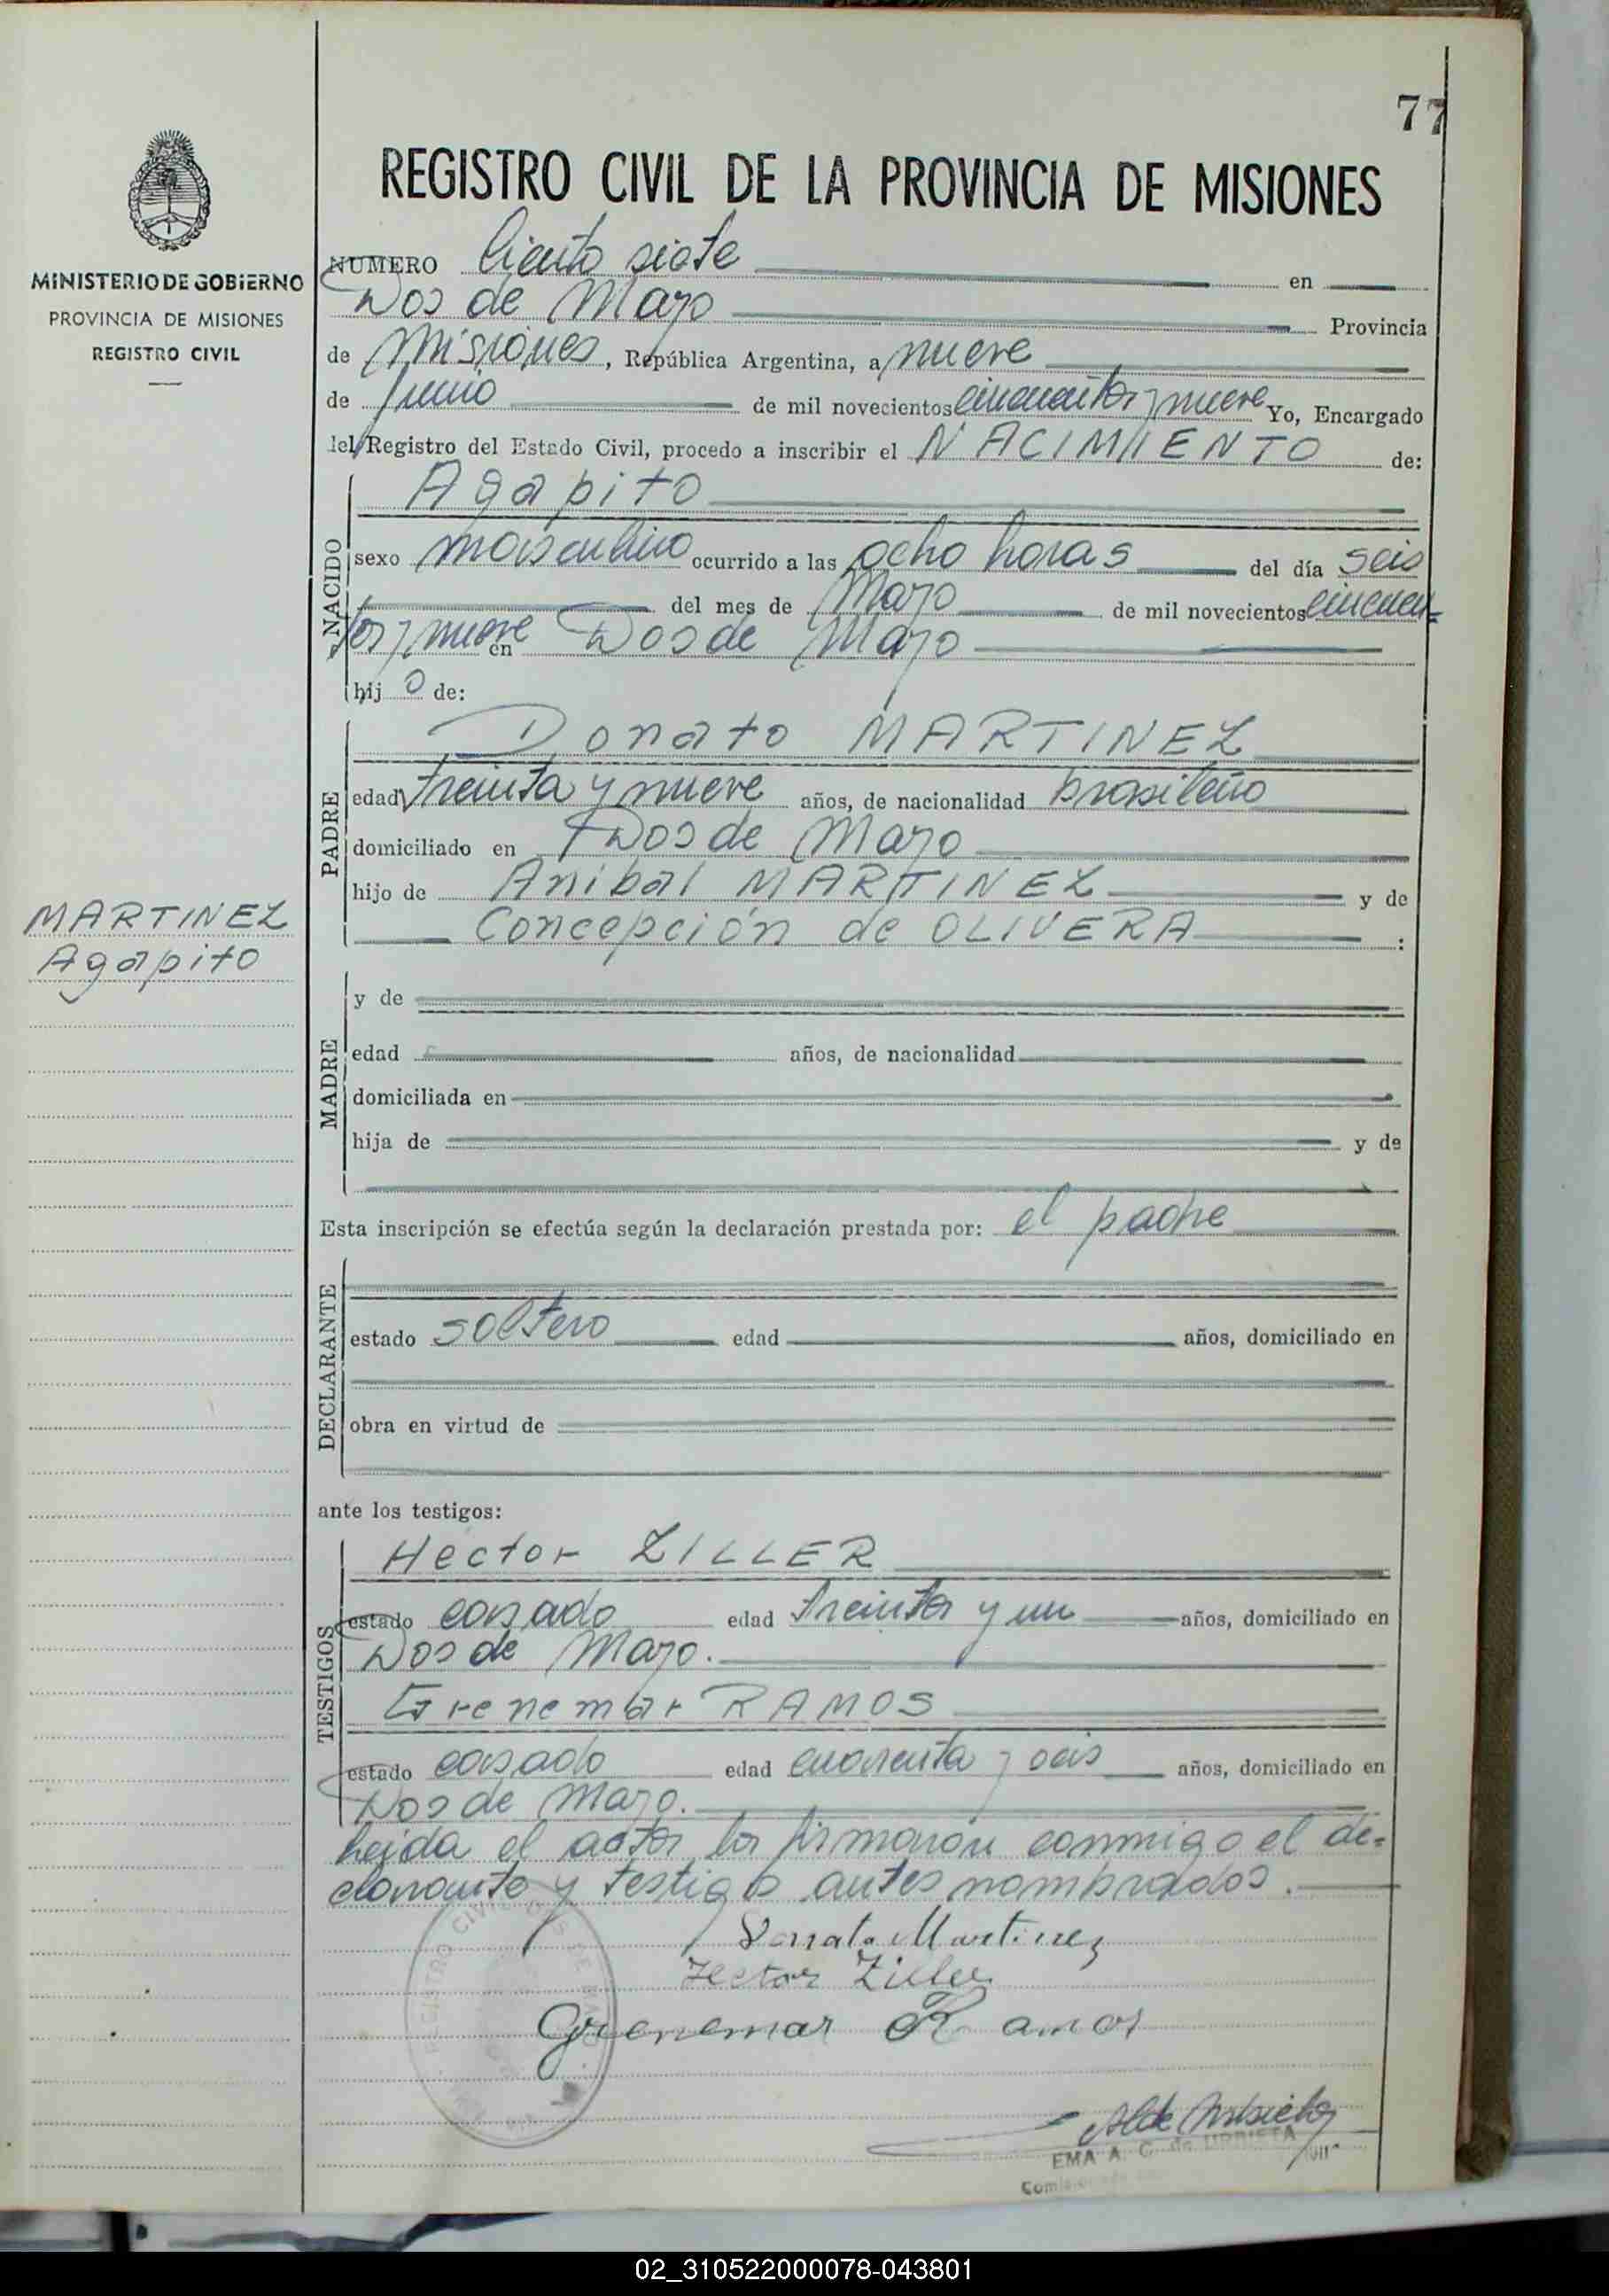 77
REGISTRO CIVIL DE LA PROVINCIA DE MISIONES
MINISTERIO DE GOBIERNO
PROVINCIA DE MISIONES
REGISTRO CIVIL
NUMERO Ciento siete en
Dos de Mayo Provincia
de Misiones, República Argentina, a nueve
de junio de mil novecientos cincuenta y nueve Yo, Encargado
del Registro del Estado Civil, procedo a inscribir el NACIMIENTO de:
Agapito
NACIDO
sexo masculino ocurrido a las ocho horas del día seis
del mes de Mayo de mil novecientos cincuen-
ta y nueve en Dos de Mayo
hijo de:
Donato MARTINEZ
PADRE
edad treinta y nueve años, de nacionalidad brasileño
domiciliado en Dos de Mayo
hijo de Anibal MARTINEZ y de
Concepción de OLIVERA :
MARTINEZ
Agapito
MADRE
y de
edad años, de nacionalidad
domiciliada en
hija de y de
Esta inscripción se efectúa según la declaración prestada por: el padre
DECLARANTE
estado soltero edad años, domiciliado en
obra en virtud de
ante los testigos:
TESTIGOS
Hector ZILLER
estado casado edad treinta y un años, domiciliado en
Dos de Mayo.
Grenemar RAMOS
estado casado edad cuarenta y seis años, domiciliado en
Dos de Mayo.
Leida el acta, la firmaron conmigo el de-
clarante y testigos antes nombrados.
Donato Martinez
Hector Ziller
Grenemar Ramos
REGISTRO CIVIL
EMA A. C. de URBIETA
02_310522000078-043801